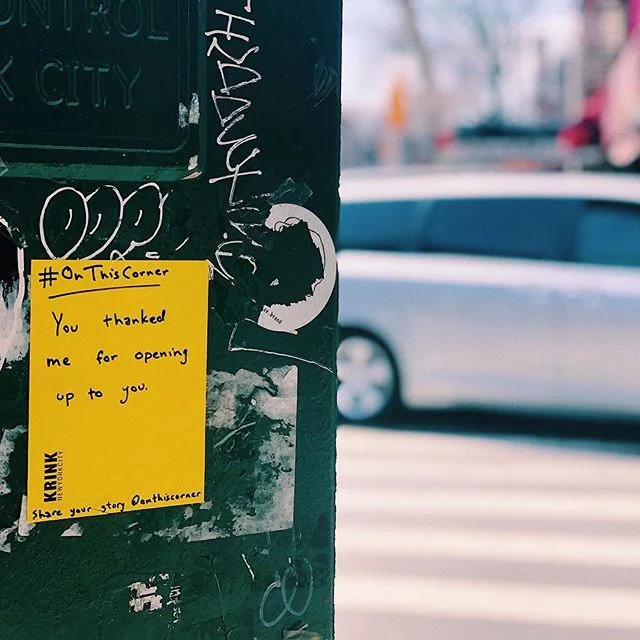 CONTROL
K CITY
#OnThisCorner
You thanked
me for opening
up to you.
KRINK
NEWYORKCITY
Share your story @onthiscorner